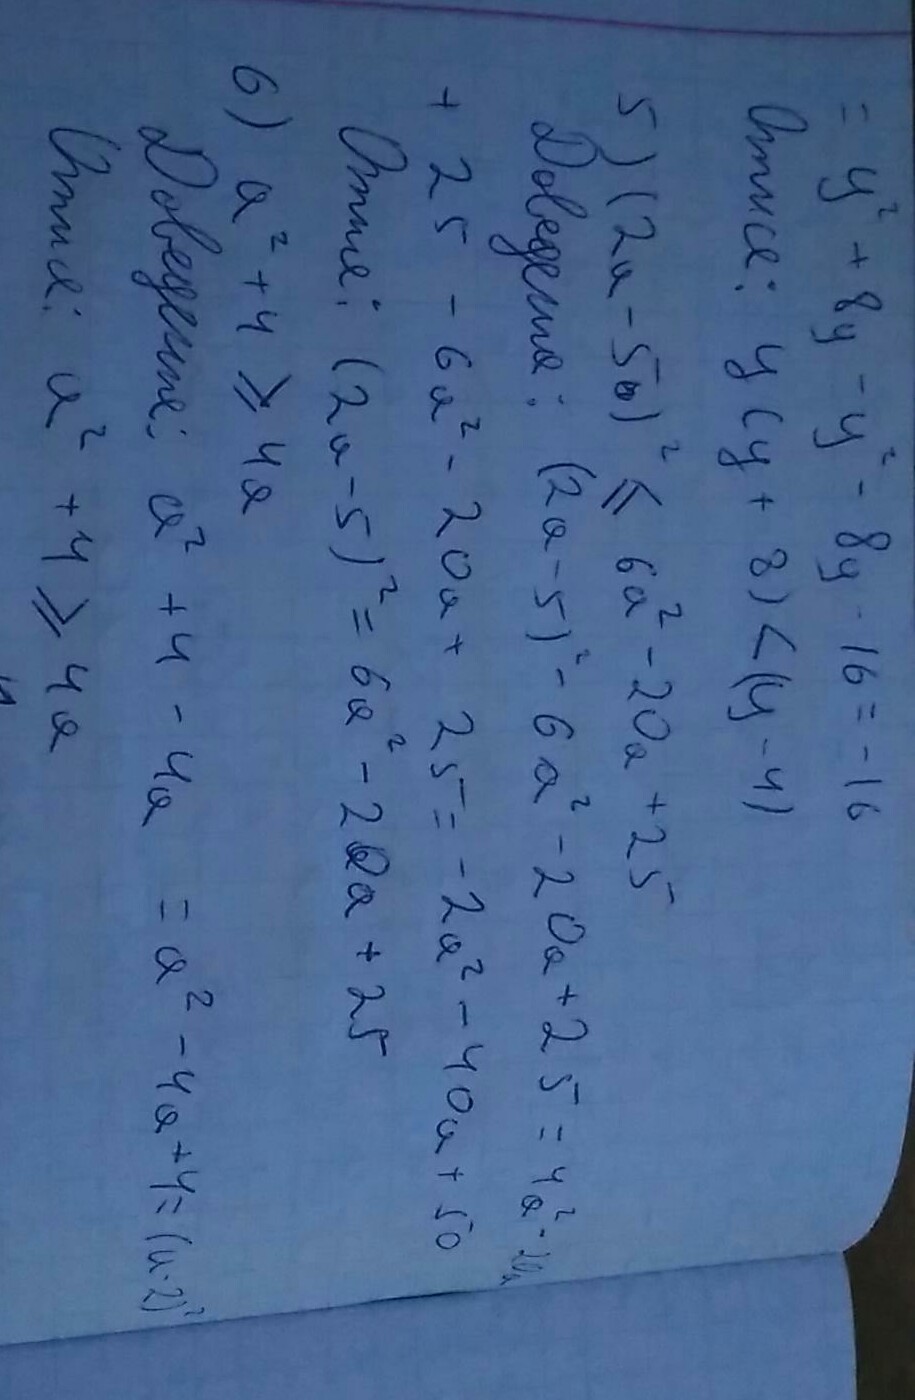 = y² + 8y - y² - 8y - 16 = -16
Отже: y(y + 8) < (y - 4)
5) (2a - 5)² ≤ 6a² - 20a + 25
Доведення: (2a - 5)² - 6a² - 20a + 25 = 4a² - 20a
+ 25 - 6a² - 20a + 25 = -2a² - 40a + 50
Отже: (2a - 5)² = 6a² - 20a + 25
6) a² + 4 ≥ 4a
Доведення: a² + 4 - 4a = a² - 4a + 4 = (a - 2)²
Отже: a² + 4 ≥ 4a